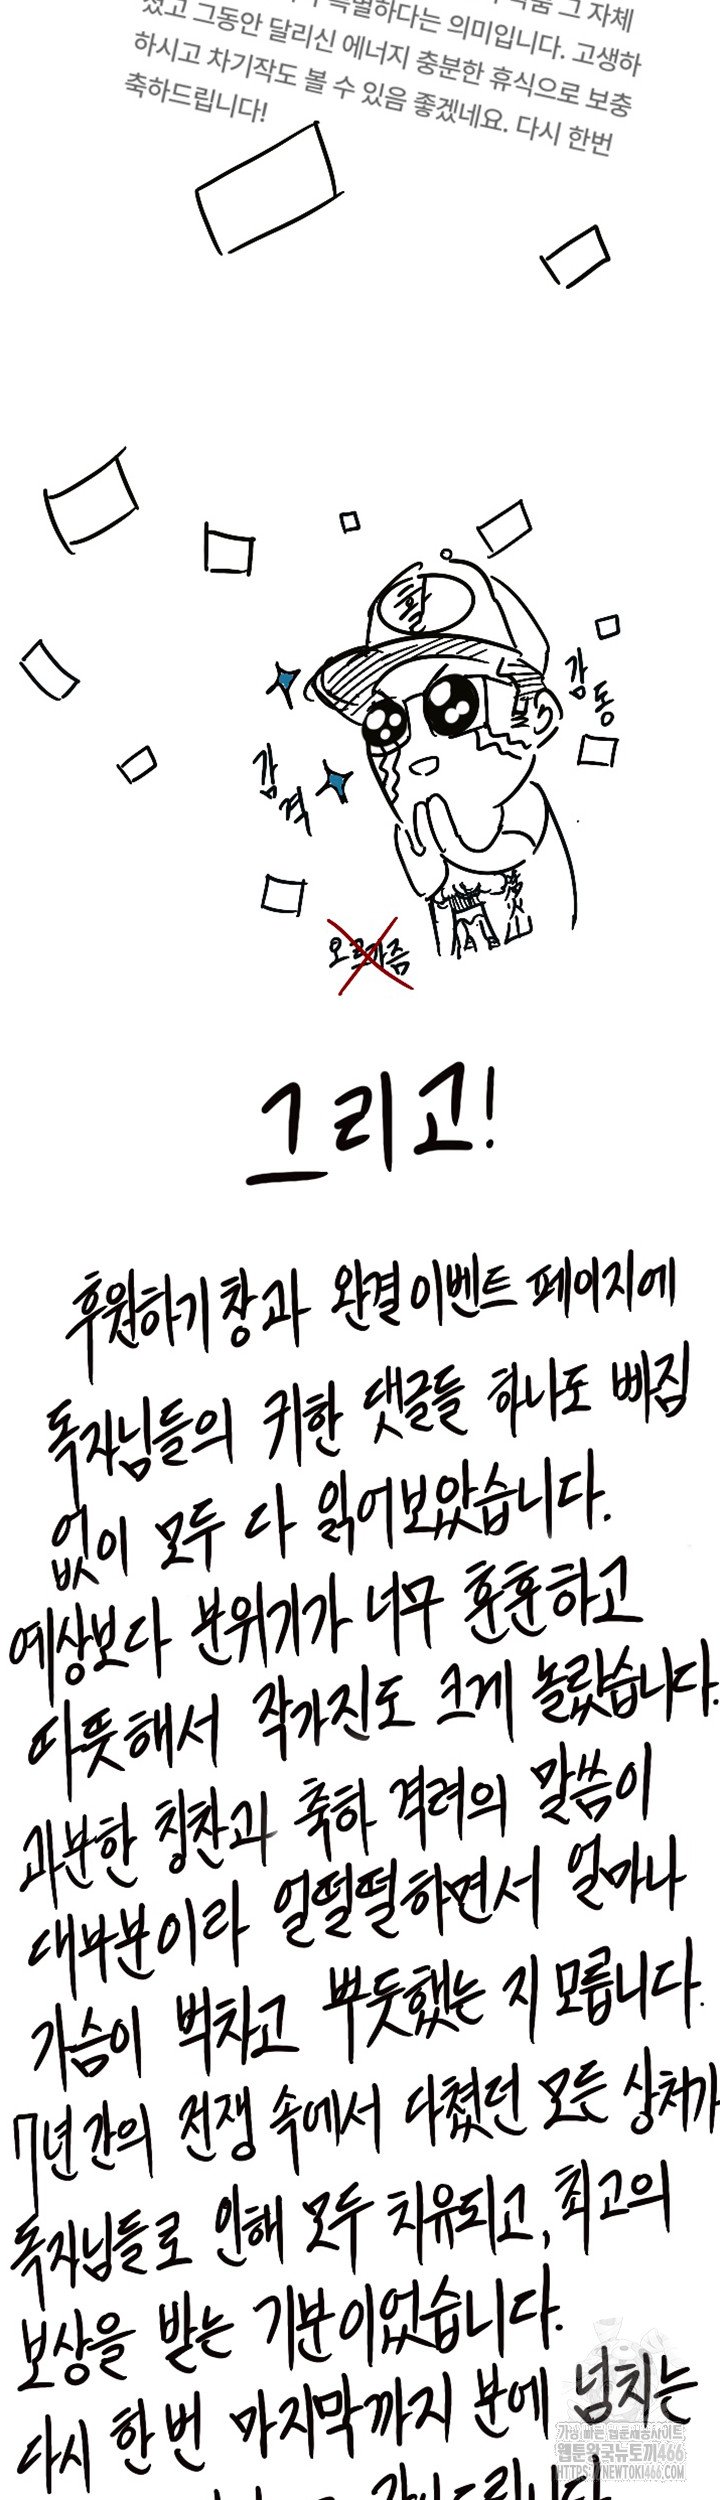 특별하다는 의미입니다. 고생하
셨고 그동안 달리신 에너지 충분한 휴식으로 보충
하시고 차기작도 볼 수 있음 좋겠네요. 다시 한번
축하드립니다!
활
감동
감격
火山
오르가즘
그리고!
후원하기 창과 완결 이벤트 페이지에
독자님들의 귀한 댓글들 하나도 빠짐
없이 모두 다 읽어보았습니다.
예상보다 분위기가 너무 훈훈하고
따뜻해서 작가진도 크게 놀랐습니다.
과분한 칭찬과 축하 격려의 말씀이
대부분이라 얼떨떨하면서 얼마나
가슴이 벅차고 뿌듯했는 지 모릅니다.
7년 간의 전쟁 속에서 다쳤던 모든 상처가
독자님들로 인해 모두 치유되고, 최고의
보상을 받는 기분이었습니다.
다시 한 번 마지막까지 분에 넘치는
가장 빠른 웹툰제공사이트
웹툰왕국뉴토끼466
HTTPS://NEWTOKI466.COM